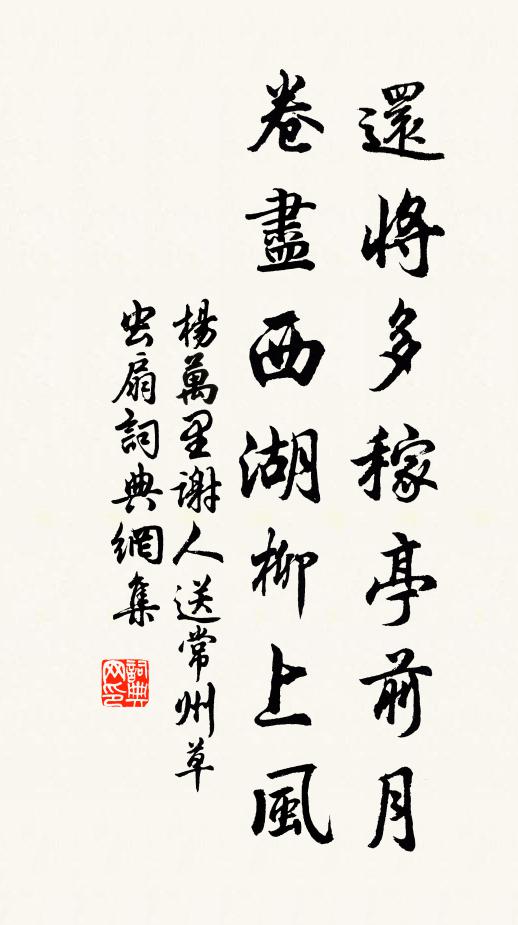 還將多稼亭前月
卷盡西湖柳上風
楊萬里謝人送常州草
虫扇詞典網集
詞典网印